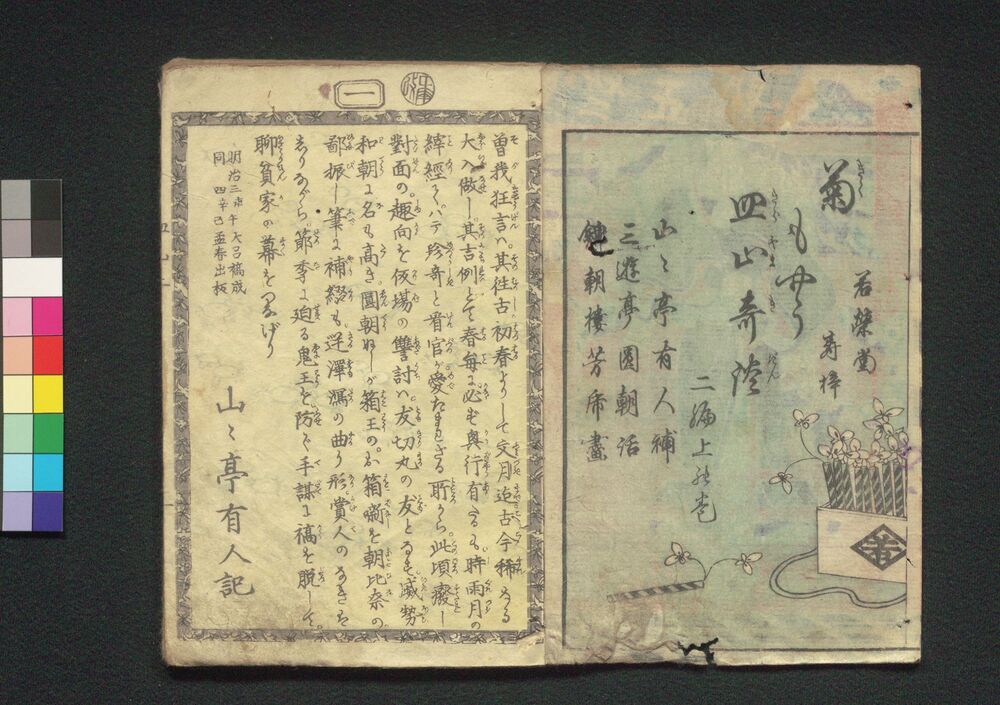 菊
もやう
皿山奇談
若榮堂
寿梓
二編上の巻
山〻亭有人補
三遊亭圓朝話
朝楼芳席畫
若
一
曽我狂言ハ。其往古初春よりして文月迄古今稀なる
大入做し。其吉例とて春毎に必ず興行有るも。時雨月の
緯經そハで珍奇と看官が愛たまはざる所から。此頃廢し
對面の。趣向を仮場の讐討ハ。友切丸の友とるも威勢
和朝に名も高き圓朝ぬしが箱王の。お箱噺を朝比奈の
鄙振し筆に補綴も逆澤瀉の曲り形賞人のなきを
しりながら節季に廹る鬼王を防ぐ手謀に稿を脱して。
聊貧家の幕をひらげり
明治三庚午大呂稿成
同四辛巳孟春出板
山〻亭有人記